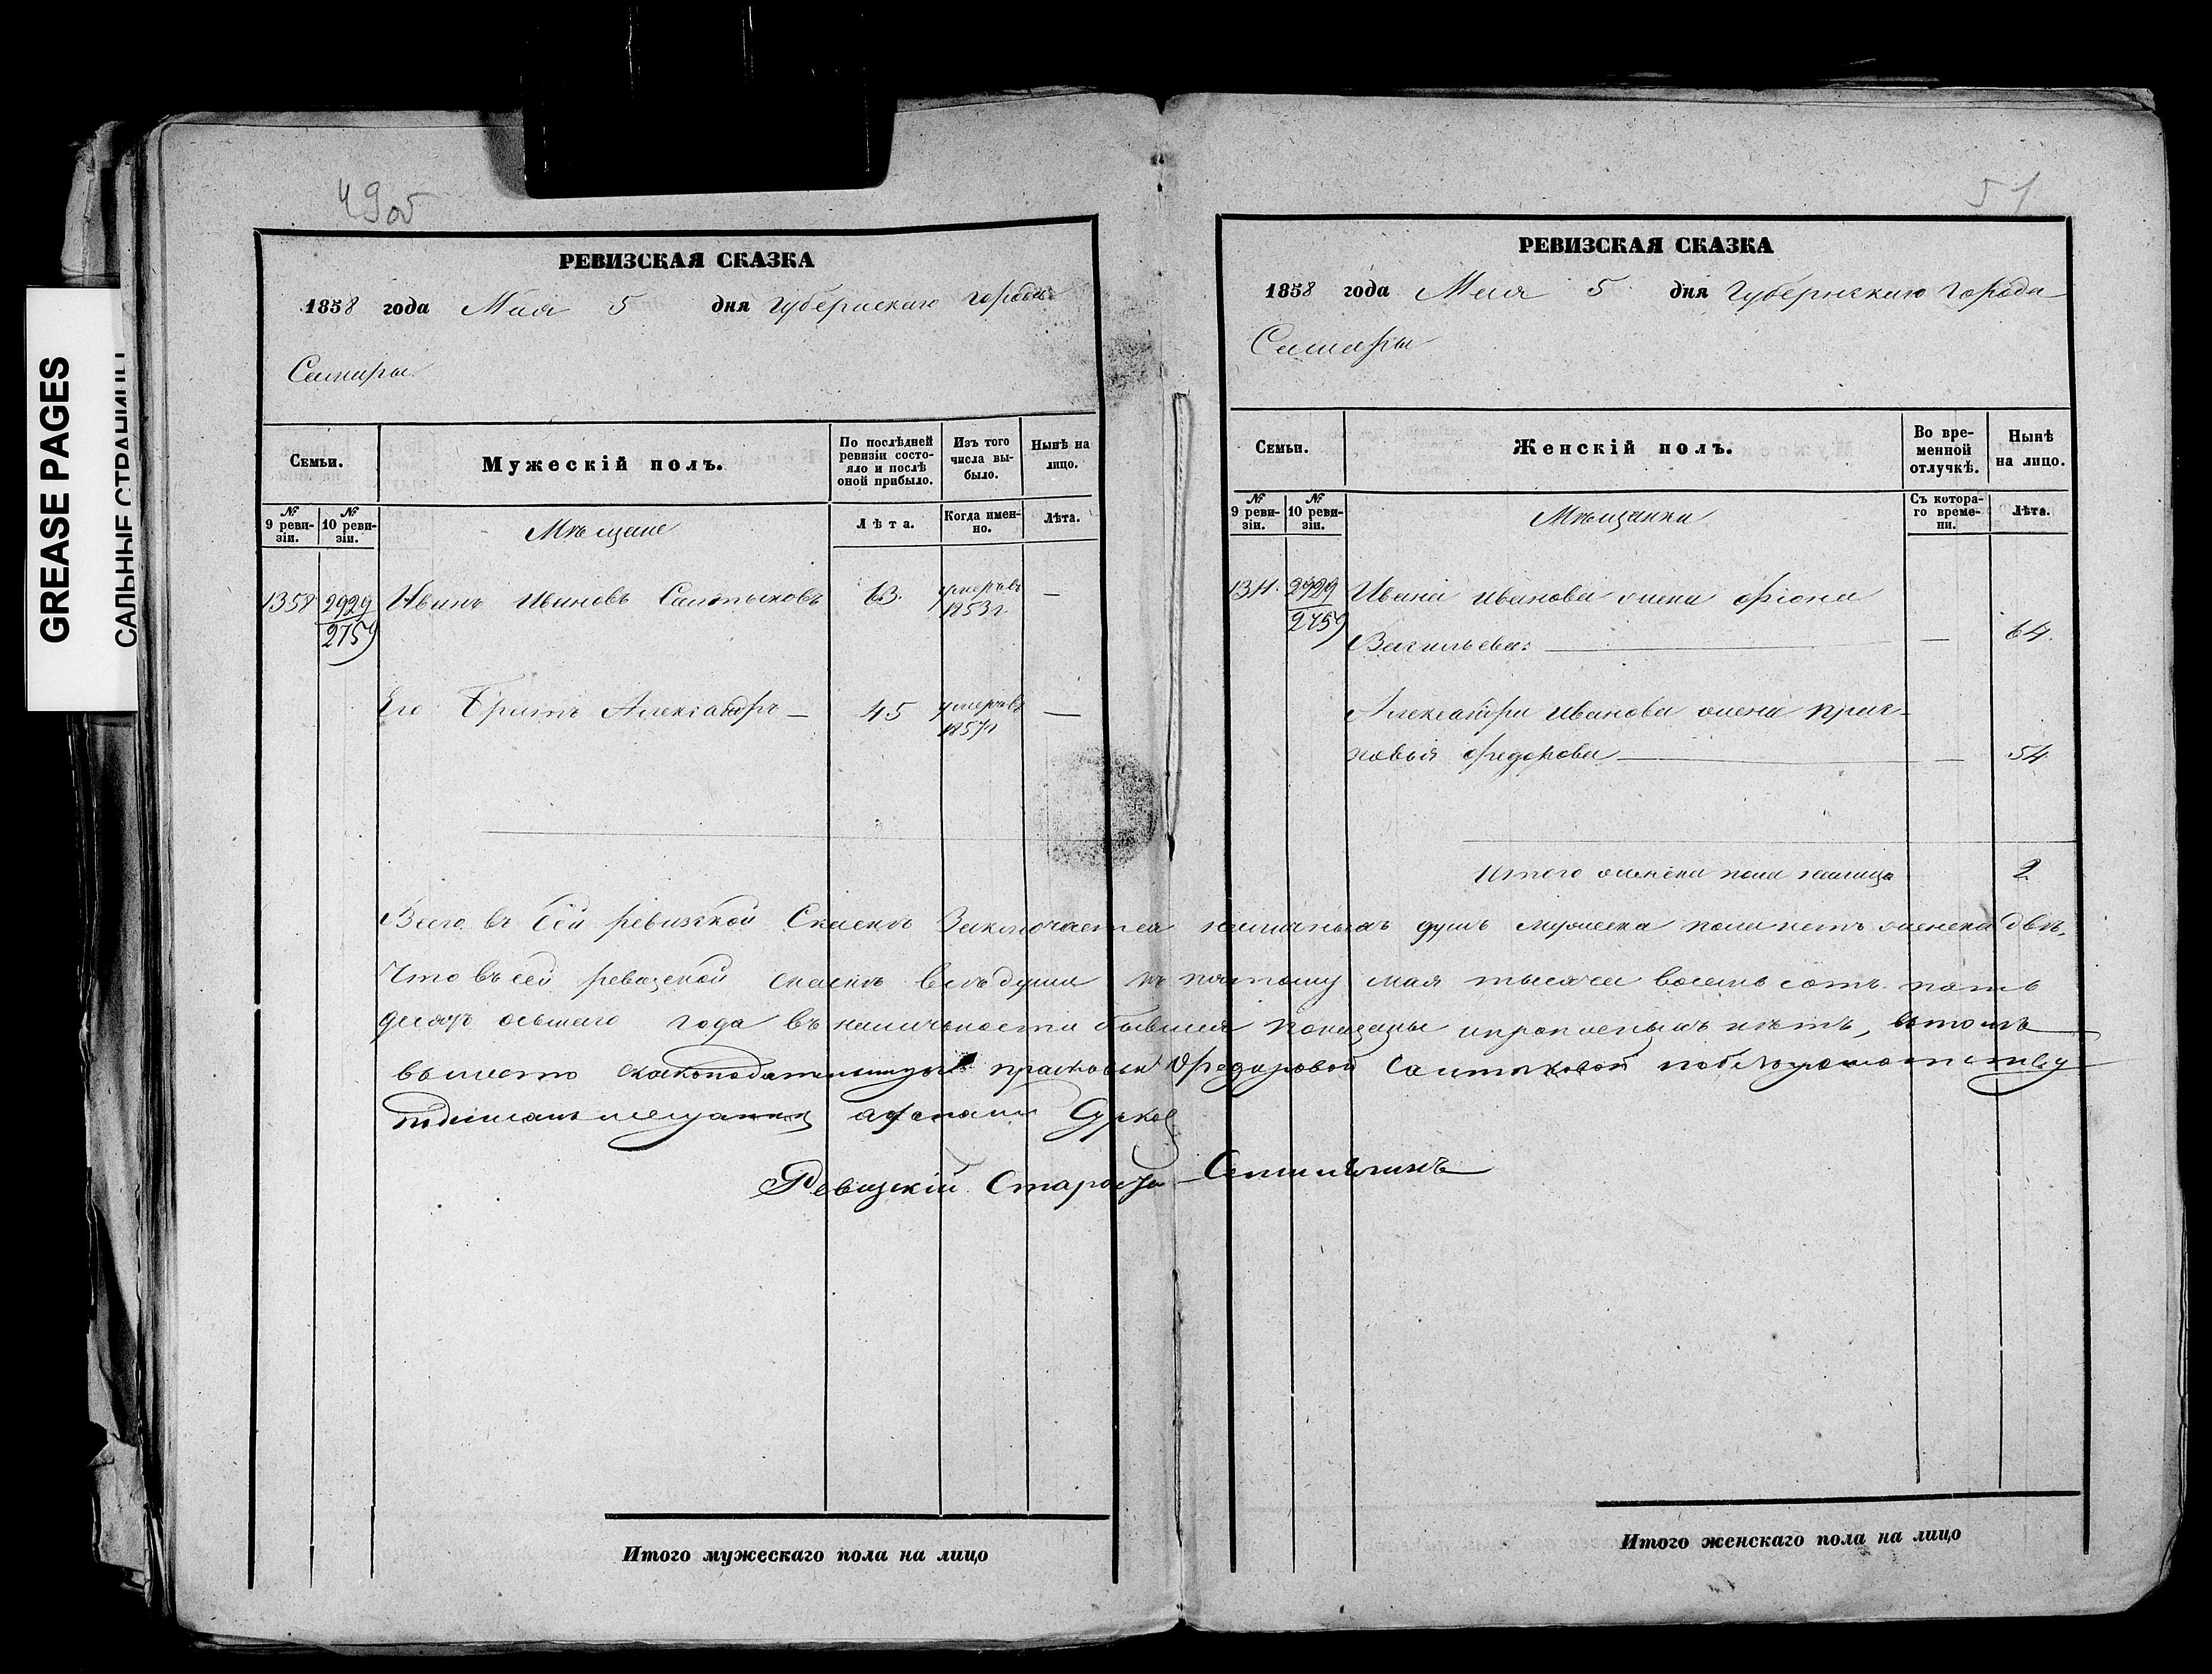 GREASE PAGES
САЛЬНЫЕ СТРАНИЦЫ
49об
РЕВИЗСКАЯ СКАЗКА
1858 года Мая 5 дня Губернскаго города
Самары
Семьи.
Мужескій полъ.
По послѣдней ревизіи состояло и послѣ оной прибыло.
Изъ того числа выбыло.
Нынѣ на лицо.
№ 9 ревизіи.
№ 10 ревизіи.
Мѣщане
Лѣта.
Когда именно.
Лѣта.
1358 2929 Иванъ Ивановъ Салтыковъ 63 умеръ въ —
2759 1853г
Его Братъ Александръ — 45 умеръ въ —
1857г
51
РЕВИЗСКАЯ СКАЗКА
1858 года Мая 5 дня Губернскаго города
Самары
Семьи.
Женскій полъ.
Во временной отлучкѣ.
Нынѣ на лицо.
№ 9 ревизіи.
№ 10 ревизіи.
Мѣщанки
Съ котораго времени.
Лѣта.
2929 Ивана Иванова жена Фіона
2759 Васильева — — 64.
Александра Иванова жена Прас-
ковья Федорова — — 54
Итого женска пола налицо 2
Всего въ сей ревизской Сказкѣ Заключается наличныхъ душъ мужеска пола нетъ женска двѣ.
Что въ сей ревизской сказкѣ всѣ души къ пятому мая тысяча восемь сотъ пять
десятъ осьмаго года въ наличности бывшія показаны и прописныхъ нѣтъ, втомъ
вместо сказкоподательницы прасковьи Федоровой Салтыковой побезграмотству
подписалъ мещанин афанасий Сурков
Ревизскій Староста
Итого мужескаго пола на лицо
Итого женскаго пола на лицо